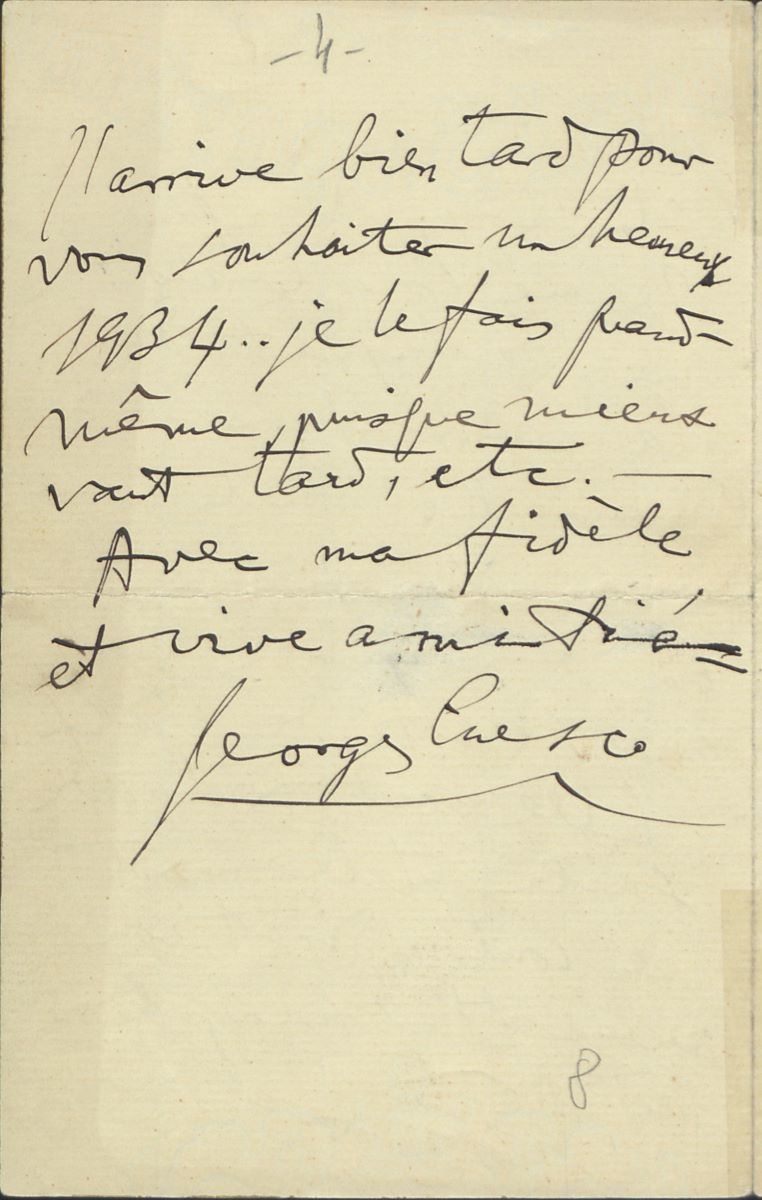 -4-
J'arrive bien tard pour
vous souhaiter un heureux
1934.. je le fais quand-
même, puisque mieux
vaut tard, etc. —
Avec ma fidèle
et vive amitié =
Georges Enesco
8